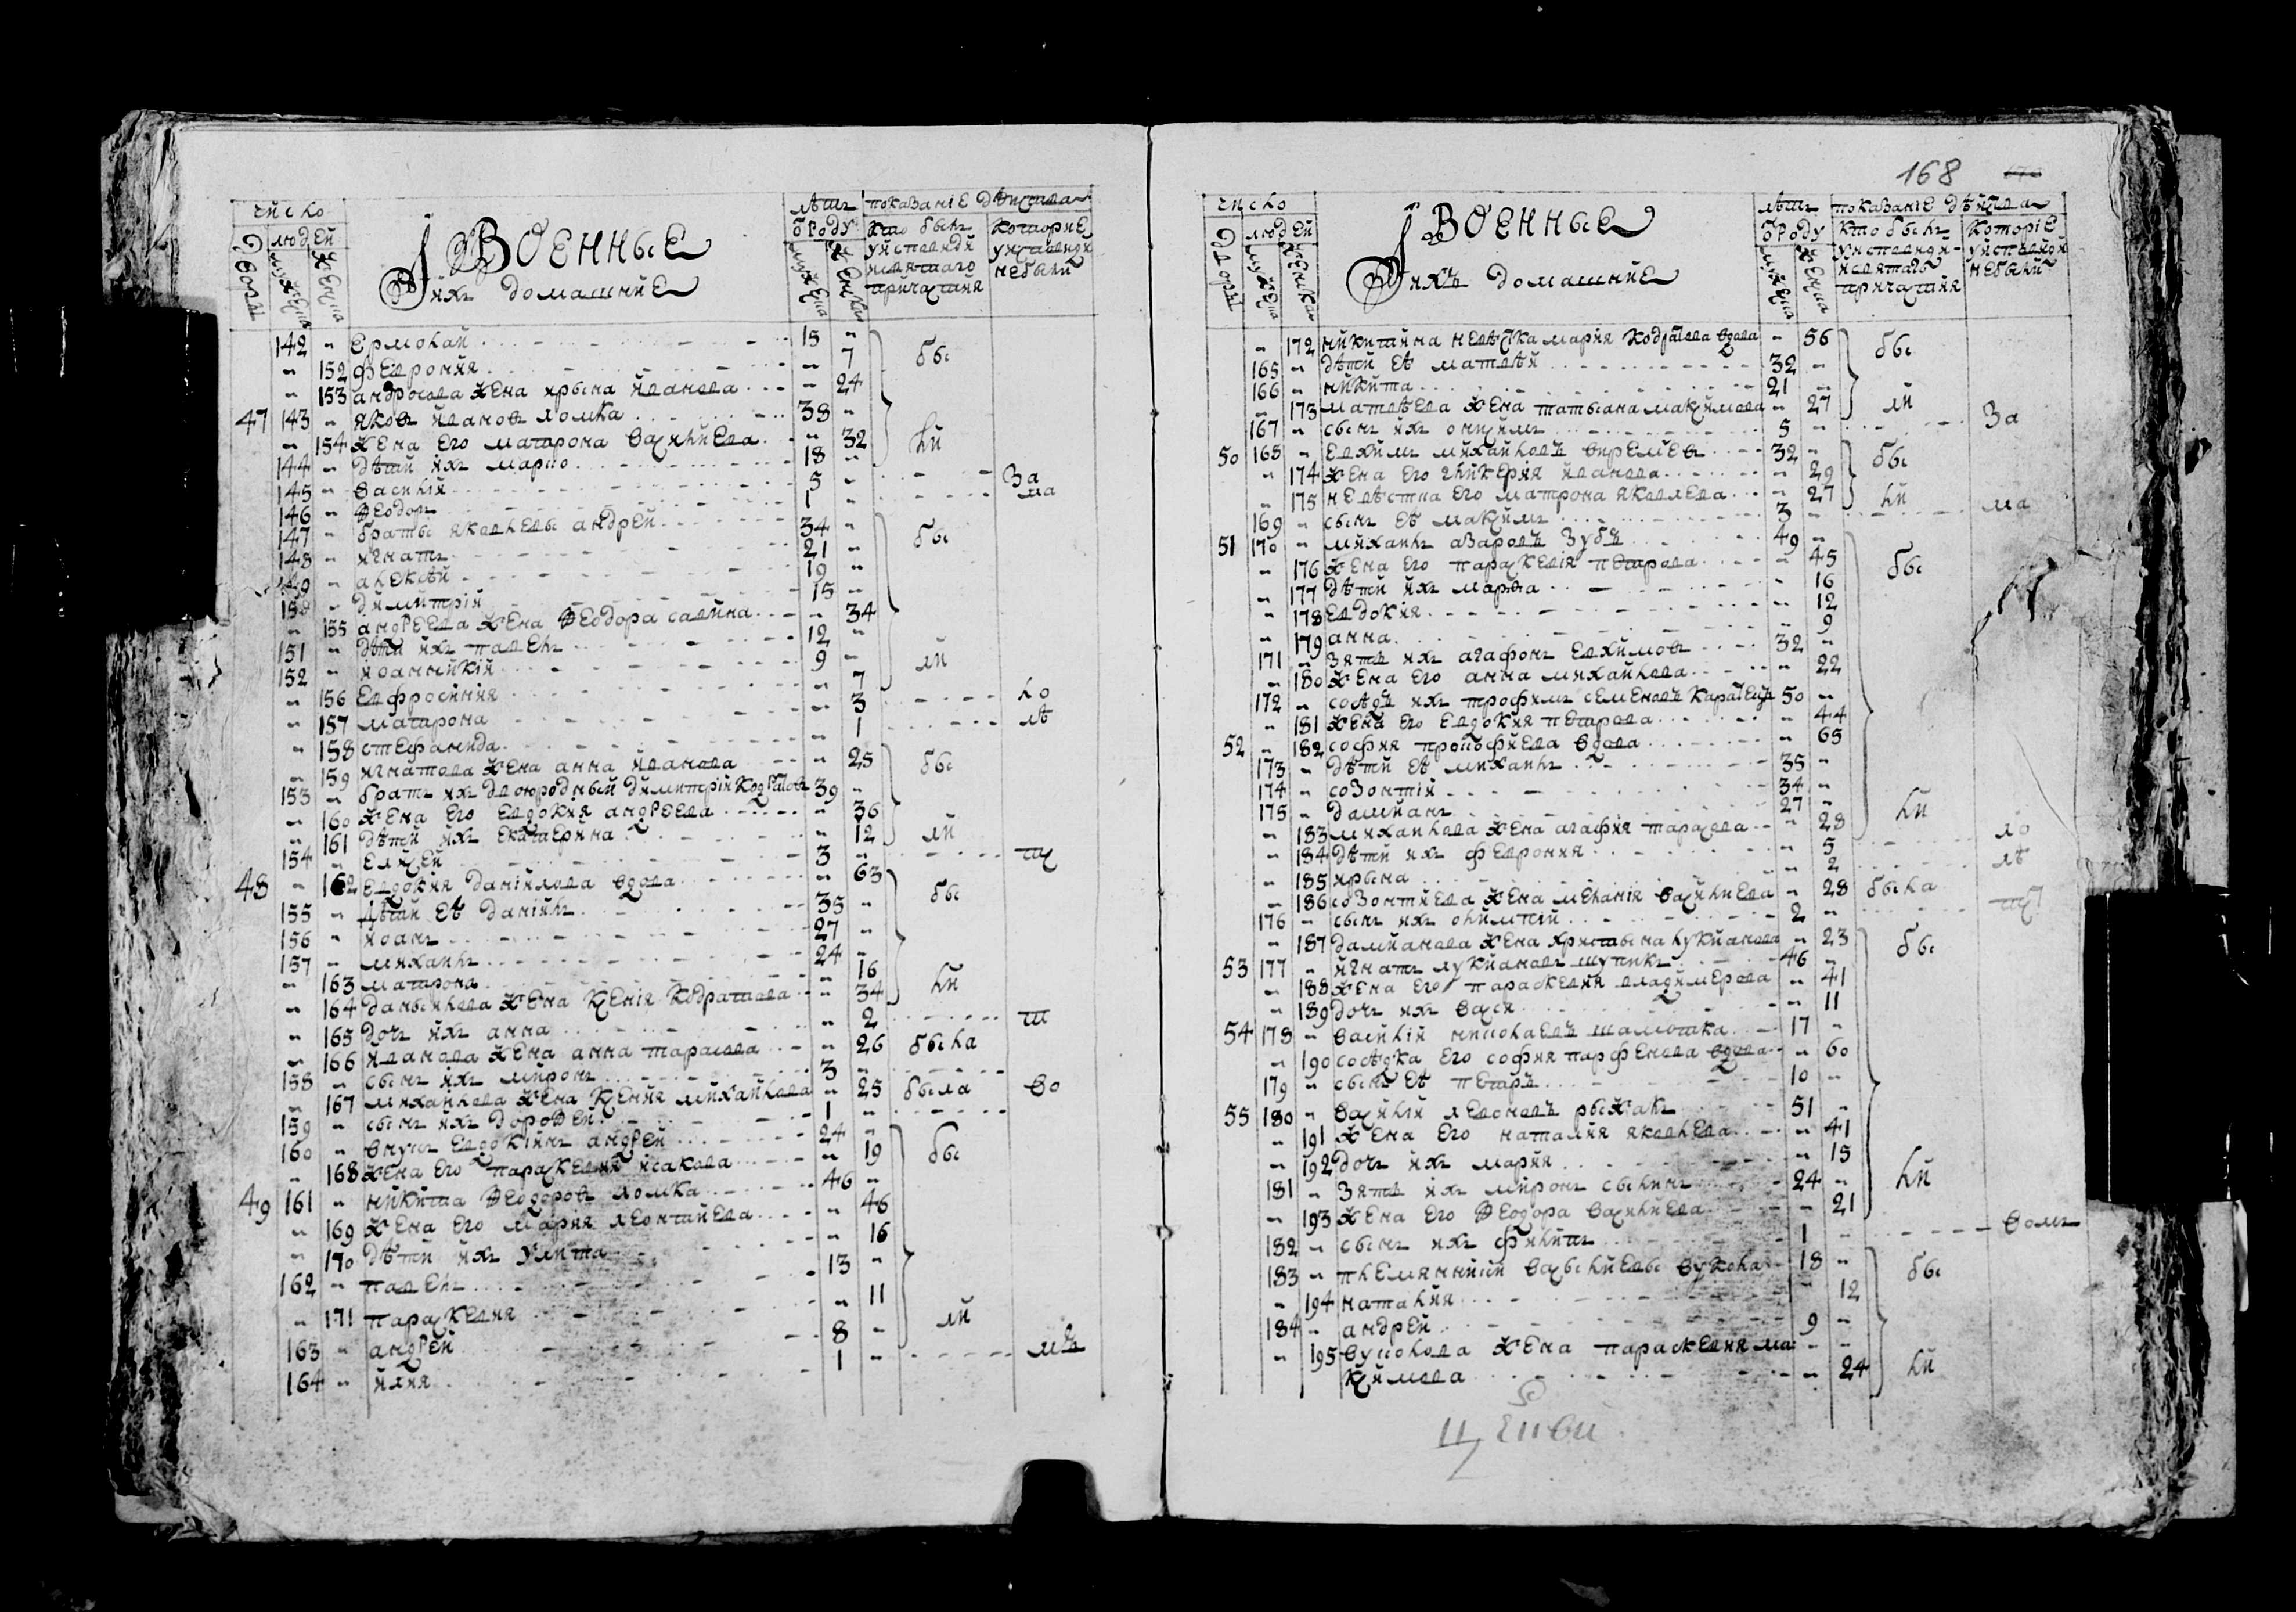 число
показаніе дѣиства
дворы
людей
Военные
и ихъ домашние
лѣтъ
ѿ роду
кто былъ
у исповиди
и святаго
причастия
которие
у исповиди
не были
142 Ермолай 15
152 Феврония 7 бы
153 андросова жена ирына иванова 24
47 143 яковъ ивановъ ломка 38
154 жена его матрона василиева 32 ли
144 дѣти ихъ марко 18
145 василій 5 За
146 Ѳеодоръ 1 ма
147 браты яковлевы андрей 34
148 игнатъ 21 бы
149 алексѣй 19
150 димитрій 15
155 андреева жена Ѳеодора савина 34
151 дѣти ихъ павелъ 12
152 иоанникій 9 ли
156 Евфросиния 7
157 матрона 3 ло
158 стефанида 1 лѣ
159 игнатова жена анна иванова 25 бы
153 братъ ихъ двоюродный димитрій кодратовъ 39
160 жена его Евдокия андреева 36
161 дѣти ихъ Екатерина 12 ли
154 Елисей 3
48 162 Евдокия данийлова вдова 63
155 дѣти Еѣ даниилъ 35 бы
156 иоанъ 27
157 михаилъ 24
163 матрона 16
164 данылова жена ксения кодратова 34 ли
165 дочъ ихъ анна 2 ш
166 иванова жена анна тарасова 26 была
158 сынъ ихъ миронъ 3
167 михайлова жена ксения михайлова 25 была во
159 сынъ ихъ дороѲей 1
160 внукъ Евдокиинъ андрей 24
168 жена его параскевия исакова 19 бы
49 161 никита Ѳеодоровъ ломка 46
169 жена его мария леонтиева 46
170 дѣти ихъ улита 16
162 павелъ 13
171 параскевия 11
163 андрей 8 ли
164 илия 1
168
число
показаніе дѣйства
дворы
людей
Военные
и ихъ домашние
лѣтъ
ѿ роду
кто былъ
у исповиди
и святаго
причастия
которіе
у исповиди
не были
172 никитина невѣстка мария кодратова вдова 56
165 дѣти Еѣ матвѣй 32 бы
166 никита 21
173 матвѣева жена татьяна максимова 27 ли
167 сынъ ихъ онисимъ 5 За
50 168 Евхимъ михайловъ 32
174 жена его гликерия иванова 29 бы
175 невѣстка его матрона яковлева 27 ли
169 сынъ Еѣ максимъ 3 ма
51 170 михаилъ азаровъ Зубъ 49
176 жена его параскевія петрова 45 бы
177 дѣти ихъ марѳа 16
178 Евдокия 12
179 анна 9
171 Зять ихъ агафонъ Евхимовъ 32
180 жена его анна михайлова 22
172 сосѣдъ ихъ трофимъ семеновъ 50
181 жена его Евдокия петрова 44
52 182 софия вдова 65
173 дѣти Еѣ михаилъ 35
174 созонтій 34
175 дамианъ 27 ли
183 михайлова жена агафия тарасова 28
184 дѣти ихъ феврония 5 ло
185 ирына 2 лѣ
186 созонтиева жена меланія василиева 28 была
176 сынъ ихъ 2
187 дамианова жена христына лукианова 23
53 177 игнатъ лукиановъ 46 бы
188 жена его параскевия владимерова 41
189 дочъ ихъ васса 11
54 178 василій николаевъ 17
190 сосѣдка его софия парфенова вдова 60
179 сынъ Еѣ петръ 10
55 180 василій леоновъ рыжакъ 51
191 жена его наталия яковлева 41
192 дочъ ихъ мария 15
181 Зять ихъ миронъ 24 ли
193 жена его Ѳеодора василиева 21
182 сынъ ихъ филипъ 1
183 племянники василиевы вукола 18
194 наталия 12 бы
184 андрей 9
195 вуколова жена параскевия ма
ксимова 24 ли